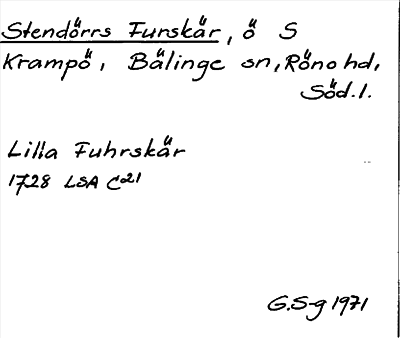 Stendörrs Furskär, ö S
Krampö, Bälinge sn, Röno hd,
Söd.l.
Lilla Fuhrskär
1728 LSA C21
G.S-g 1971